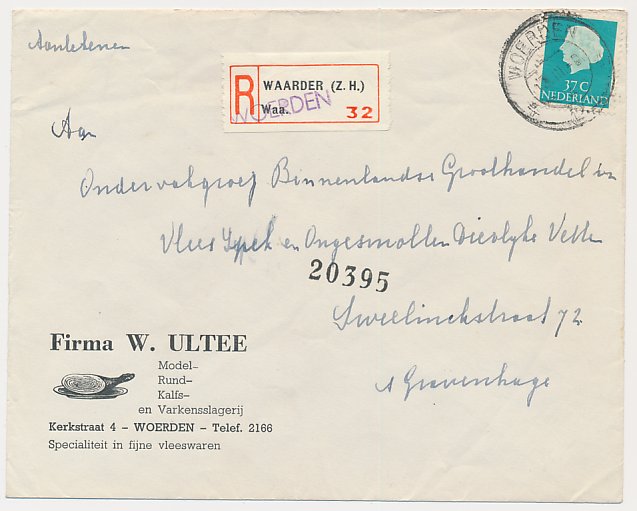 Aantekenen
R WAARDER (Z. H.)
Waa. 32
WOERDEN
WOERDEN
37 C
NEDERLAND
Aan
Ondervakgroep Binnenlandse Groothandel in
Vlees Spek en Ongesmolten Dierlyke Vetten
20395
Sweelinckstraat 72
s Gravenhage
Firma W. ULTEE
Model-
Rund-
Kalfs-
en Varkensslagerij
Kerkstraat 4 – WOERDEN – Telef. 2166
Specialiteit in fijne vleeswaren